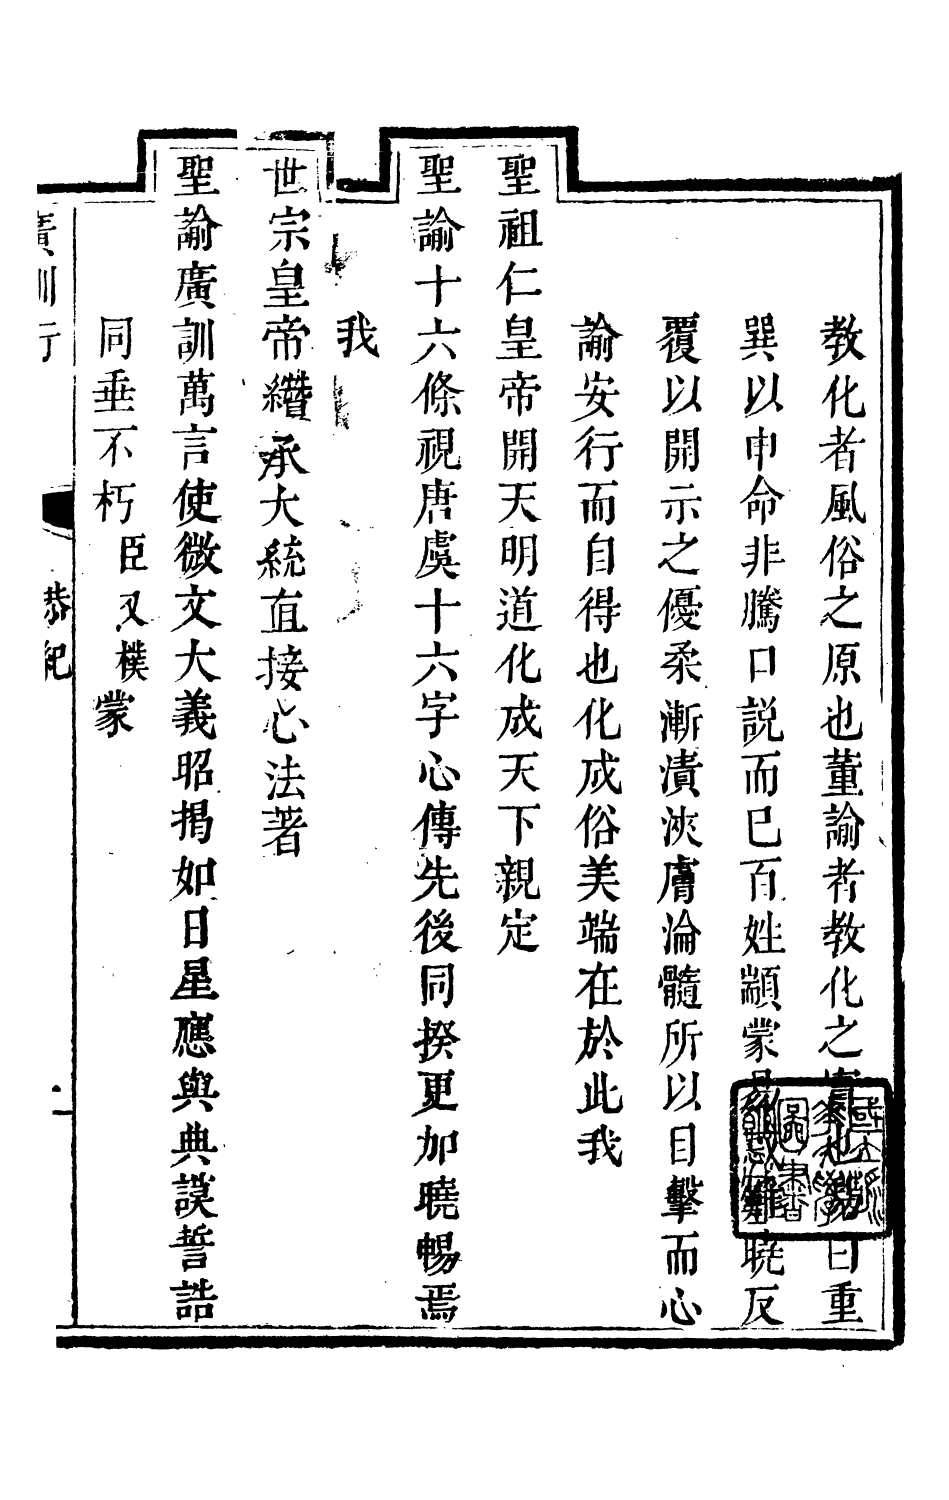 教化者風俗之原也董諭者教化之實也易曰重
巽以申命非騰口説而已百姓顓蒙易惑難曉反
覆以開示之優柔漸漬浹膚淪髓所以目擊而心
諭安行而自得也化成俗美端在於此我
聖祖仁皇帝開天明道化成天下親定
聖諭十六條視唐虞十六字心傳先後同揆更加曉暢焉
我
世宗皇帝纘承大統直接心法著
聖諭廣訓萬言使微文大義昭揭如日星應與典謨誓誥
同垂不朽臣又樸蒙
廣訓衍 恭紀 一